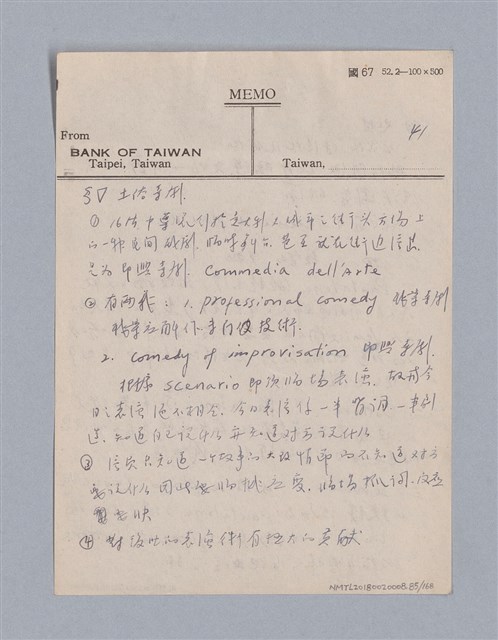 國 67 52.2-100×500
MEMO
41
From
BANK OF TAIWAN
Taipei, Taiwan
Taiwan,
喜劇
① 16 中 流行於 大利 方場上
的一種民間戲劇 臨時 台 甚至就在街邊演出
是為即興喜劇. Commedia dell'Arte
② 有兩義: 1. professional comedy 職業喜劇
職業 解作 技術.
2. comedy of improvisation 即興喜劇.
根據 scenario 即須臨場表演.
日之表演 不相同. 今日表演係一半背詞. 一半
造. 知道自己說什么 亦知道對方說什么
③ 演員只知道一个故事的大致情節 而不知道對方
要說什么 因此要臨機應變. 臨場抓詞.
④ 對後世的表演術有極大的貢獻
NMTL20180020008.85/168